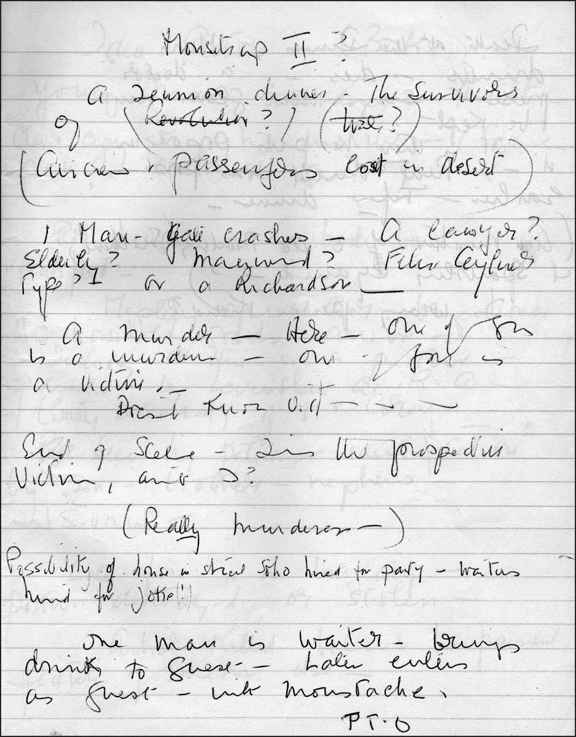 Mousetrap II ?
A reunion dinner - The Survivors
of (Revolution?) (War?)
(Aircrew & passengers lost in desert)
1 Man - Gate crashes - A lawyer?
Elderly? Mayward? Felix Aylmer
Type? or a Richardson
A murder - Here - one of you
is a murderer - one of you is
a victim -
Doesn't know vict
End of Scene - I'm the prospective
Victim, aren't I?
(Really murderer -)
Possibility of house in street Soho hired for party - waiters
hired for joke!!
One man is waiter - brings
drinks to guest - Later enters
as guest - with moustache.
P.T.O